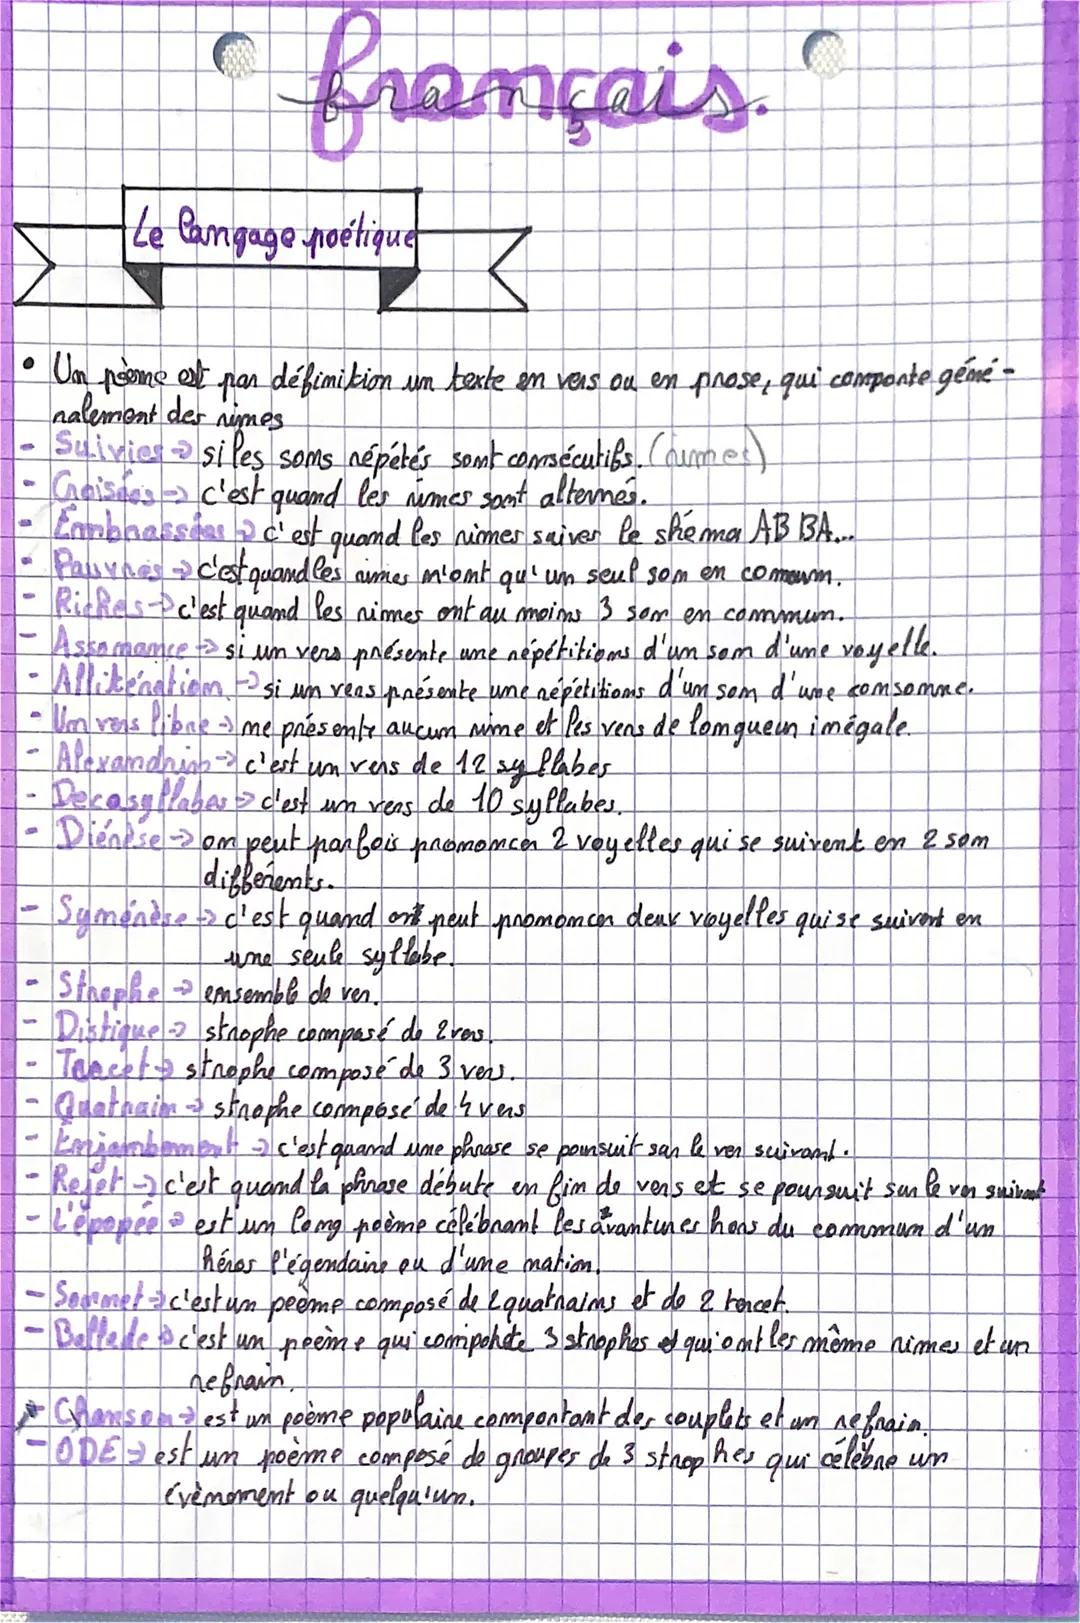 français.
Le langage poétique
• Un poème est par définition un texte en vers ou en prose, qui comporte géné-
ralement des rimes
- Suivies → si les sons répétés sont consécutifs. (rimes)
- Croisées → c'est quand les rimes sont alternés.
- Embrassées → c'est quand les rimes suiver le shéma ABBA...
- Pauvres → c'est quand les rimes n'ont qu'un seul son en commun.
- Riches → c'est quand les rimes ont au moins 3 son en commun.
- Assonance → si un vers présente une répétitions d'un son d'une voyelle.
- Allitération → si un vers présente une répétitions d'un son d'une consonne.
- Un vers libre → ne présente aucun rime et les vers de longueur inégale.
- Alexandrin → c'est un vers de 12 syllabes
- Decasyllabes → c'est un vers de 10 syllabes.
- Diérèse → on peut parfois prononcer 2 voyelles qui se suivent en 2 son
différents.
- Synérèse → c'est quand on peut prononcer deux voyelles qui se suivent en
une seule syllabe.
- Strophe → ensemble de ver.
- Distique → strophe composé de 2 vers.
- Tercet → strophe composé de 3 vers.
- Quatrain → strophe composé de 4 vers
- Enjambement → c'est quand une phrase se poursuit sur le ver suivant.
- Rejet → c'est quand la phrase débute en fin de vers et se poursuit sur le ver suivant
- L'épopée → est un long poème célébrant les avantures hors du commun d'un
héros l'égendaire ou d'une nation.
- Sonnet → c'est un poème composé de 2 quatrains et de 2 tercet.
- Ballade → c'est un poème qui comporte 3 strophes et qui ont les même rimes et un
refrain.
- Chanson → est un poème populaire comportant des couplets et un refrain.
- ODE → est un poème composé de groupes de 3 strophes qui célèbre un
évènement ou quelqu'un.